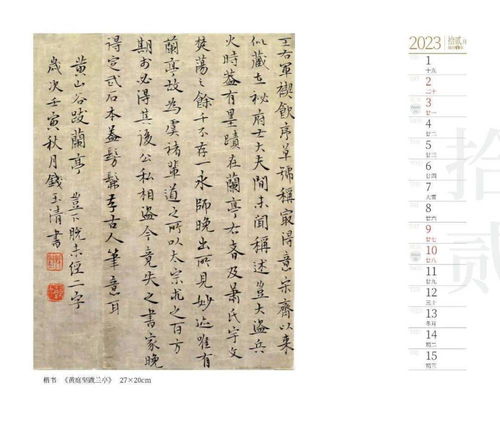 王右軍禊飲序草號稱最得意宋齊以來
似藏在秘府士大夫間未聞稱述豈大盜兵
火時蓋有墨蹟在蘭亭右者及蕭氏宇文
焚蕩之餘千不存一永師晚出所見妙迹唯有
蘭亭故為虞褚輩道之所以太宗求之百方
期於必得其後公私相盜今竟失之書家晚
得定武石本蓋髣髴存古人筆意耳
黄山谷跋蘭亭 豈下脱未經二字
歲次壬寅秋月錢玉清書
楷书 《黄庭坚跋兰亭》 27×20cm
2023
拾贰月
拾贰
1
十九
2
二十
3
廿一
4
廿二
5
廿三
6
廿四
7
大雪
8
廿六
9
廿七
10
廿八
11
廿九
12
三十
13
冬月
14
初二
15
初三